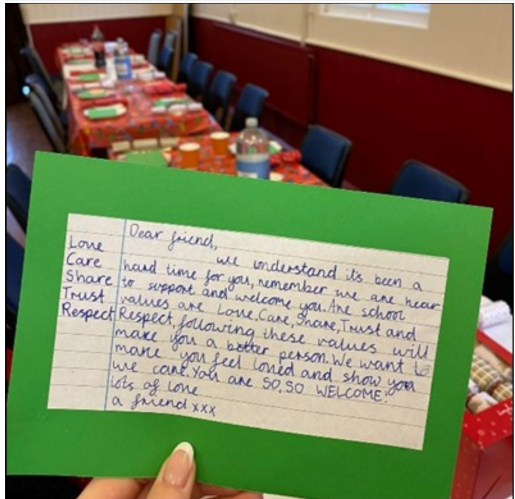 Love
Care
Share
Trust
Respect
Dear friend,
we understand its been a
hard time for you, remember we are hear
to support and welcome you. Are school
values are Love, Care, Share, Trust and
Respect, following these values will
make you a better person. We want to
make you feel loved and show you
we care. You are SO, SO WELCOME!
lots of love
a friend xxx